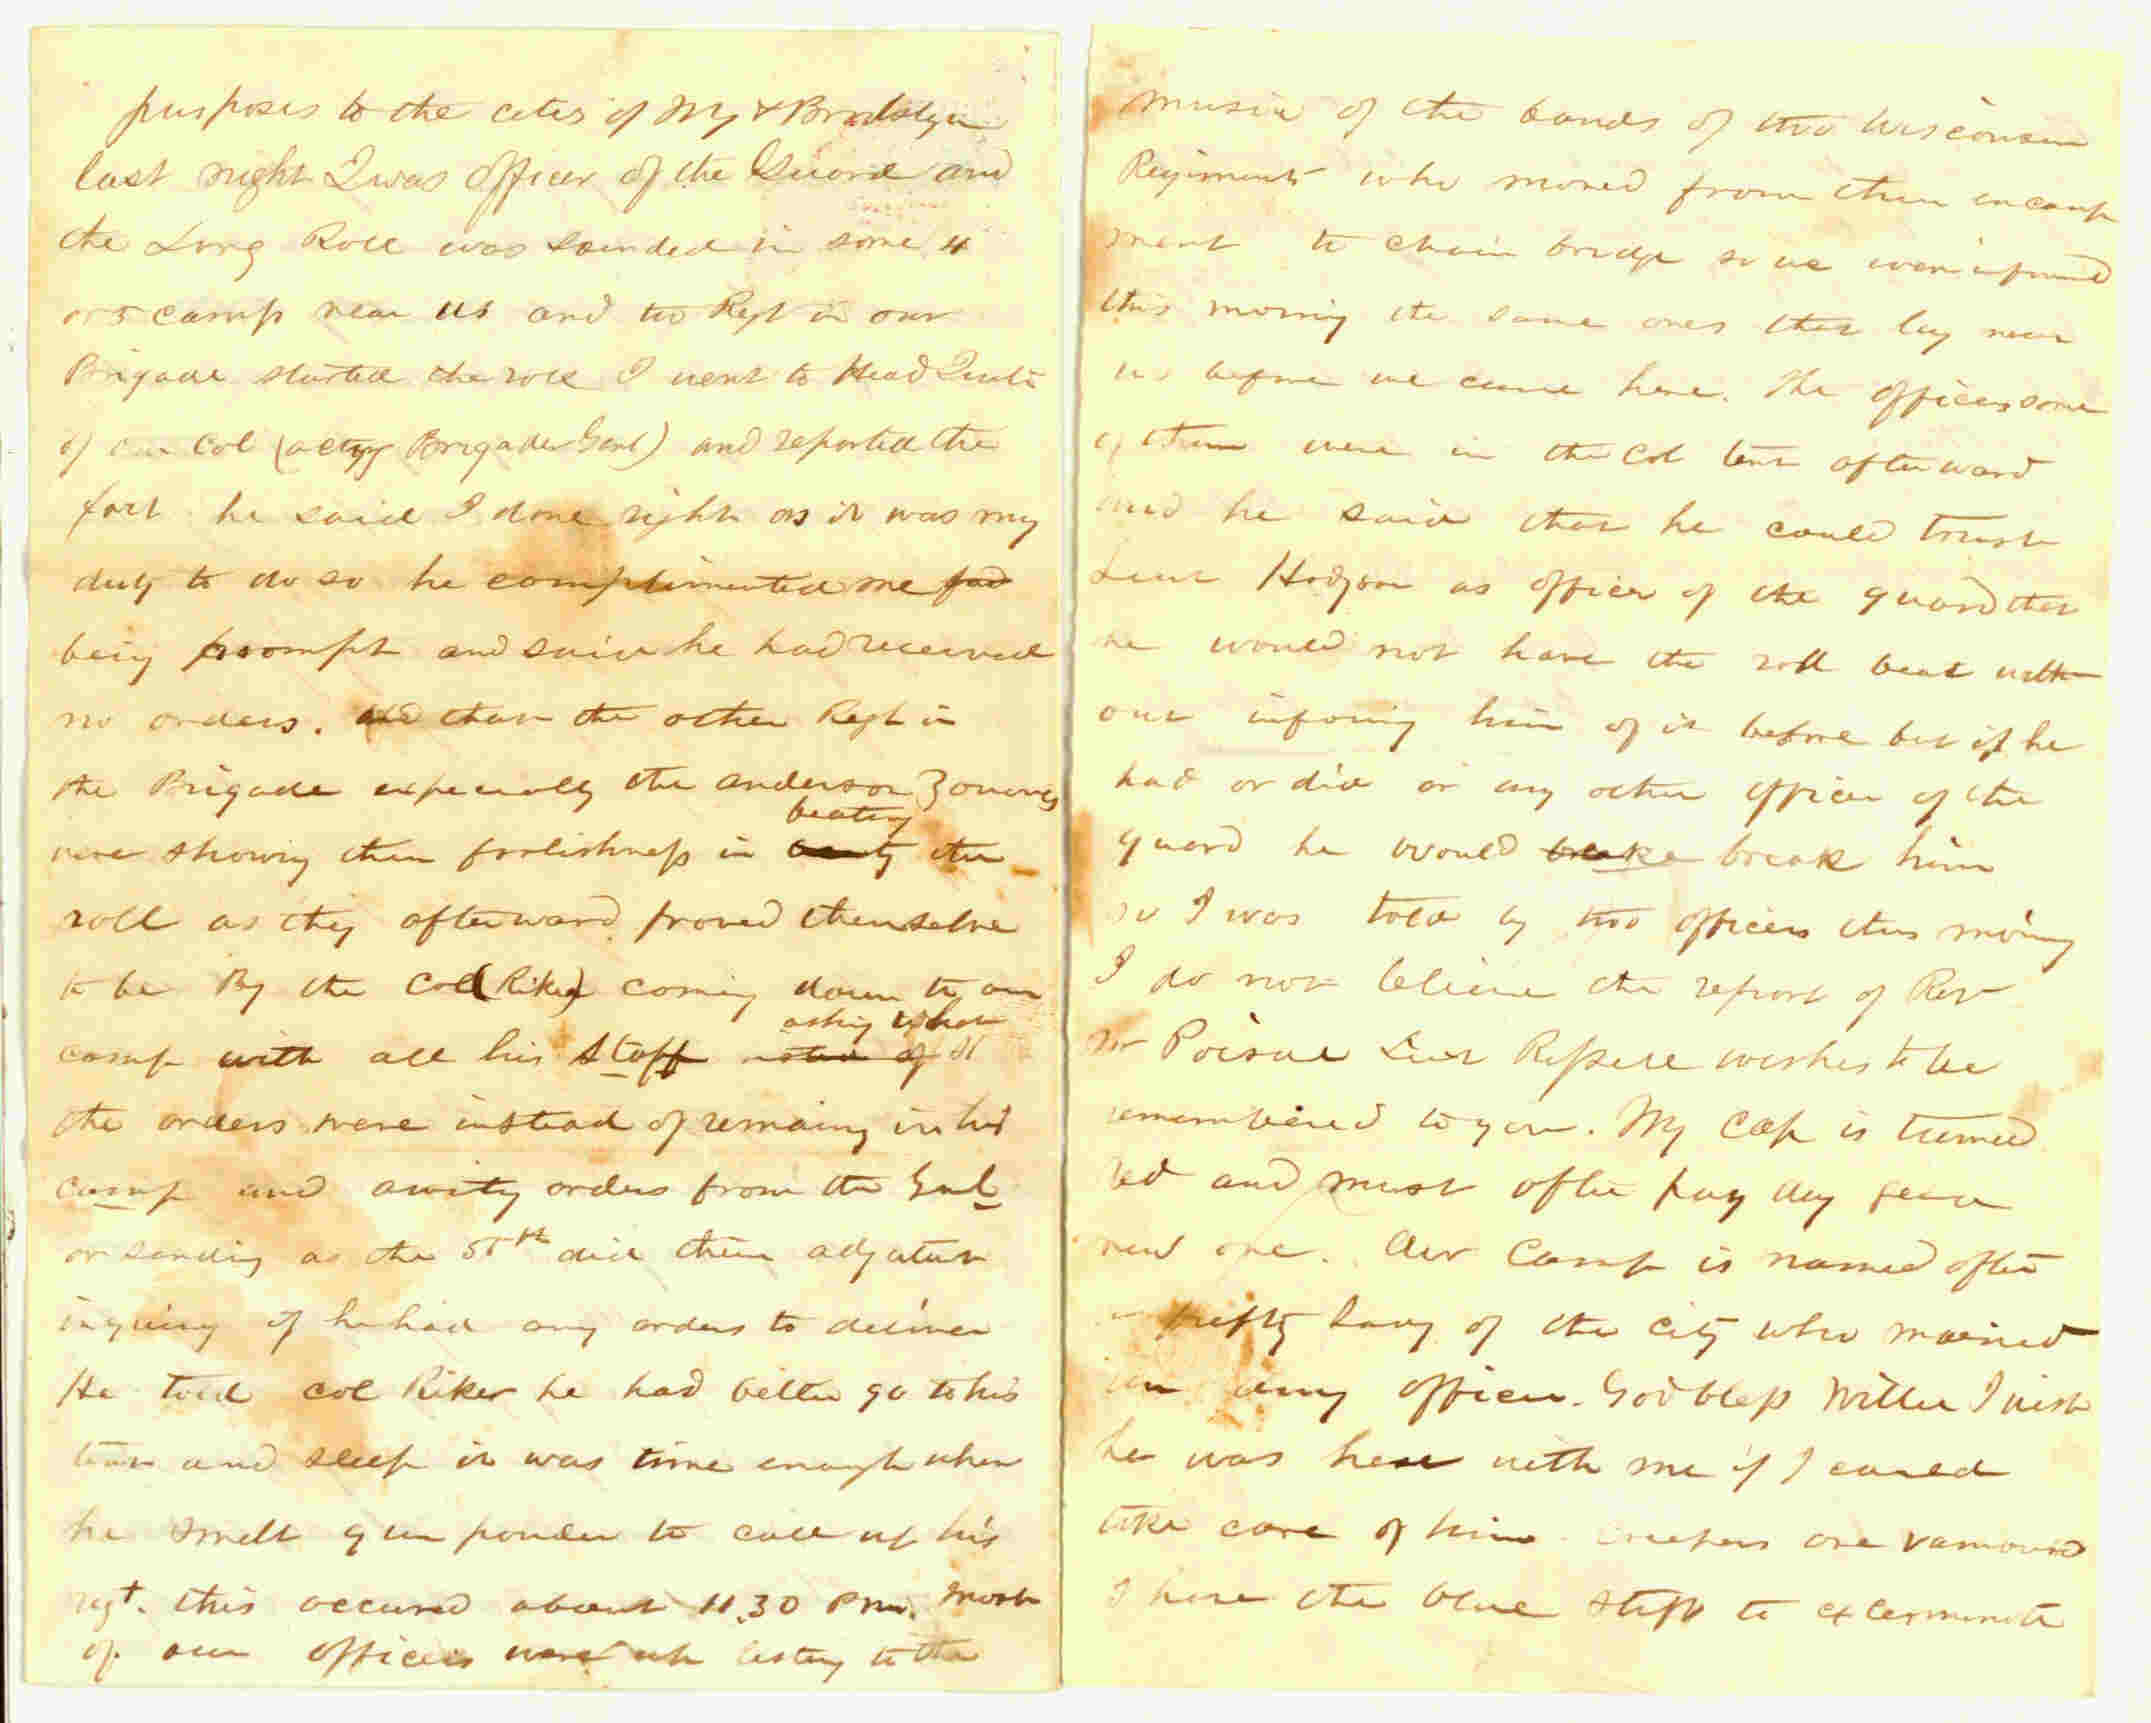 purposes to the cites of Ny & Brooklyn
last night I was officer of the Guard and
the Long Roll was sounded in some 4
or 5 camp near us and two Regt in our
Brigade started the roll I went to Head Quats
of our Col (acting Brigader Genl) and reported the
fact he said I done right as it was my
duty to do so he complimented me for
being prompt and said he had received
no orders. and than the other Regt in
the Brigade especially the anderson Zouaves
were showing their foolishness in beating the
roll as they afterward proved themselve
to be By the Col (Riker) coming down to our
camp with all his staff asking what
the orders were instead of remaing in his
camp and awaitg orders from the Genl
or sending as the 55th did their adjutant
inquiring if he had any orders to deliver
He told Col Riker he had better go to his
tent and sleep it was time enough when
he smelt gun powder to call up his
regt. this occured about 11.30 Pm. most
of our officers were up listing to the
music of the bands of two Wisconsin
Regiments who moved from their encamp
ment to chain bridge so we were informed
this morning the same ones that lay near
us before we came here. The officers some
of them were in the Col tent afterward
and he said that he could trust
Lieut Hodgson as officer of the guard that
he would not have the roll beat with
out infoing him of it before but if he
had or did or any other officer of the
guard he would break him
so I was told by two officers this moning
I do not believe the report of Rev
Mr Poisal Lieut Russell wishes to be
remembered to you. My Cap is turned
red and must after pay day get a
new one. Our Camp is named after
a prefty Lady of the city who married
an army officer. God bless Willie I wish
he was here with me if I could
take care of him. creepers are vamoused
I have the blue stuff to exterminate